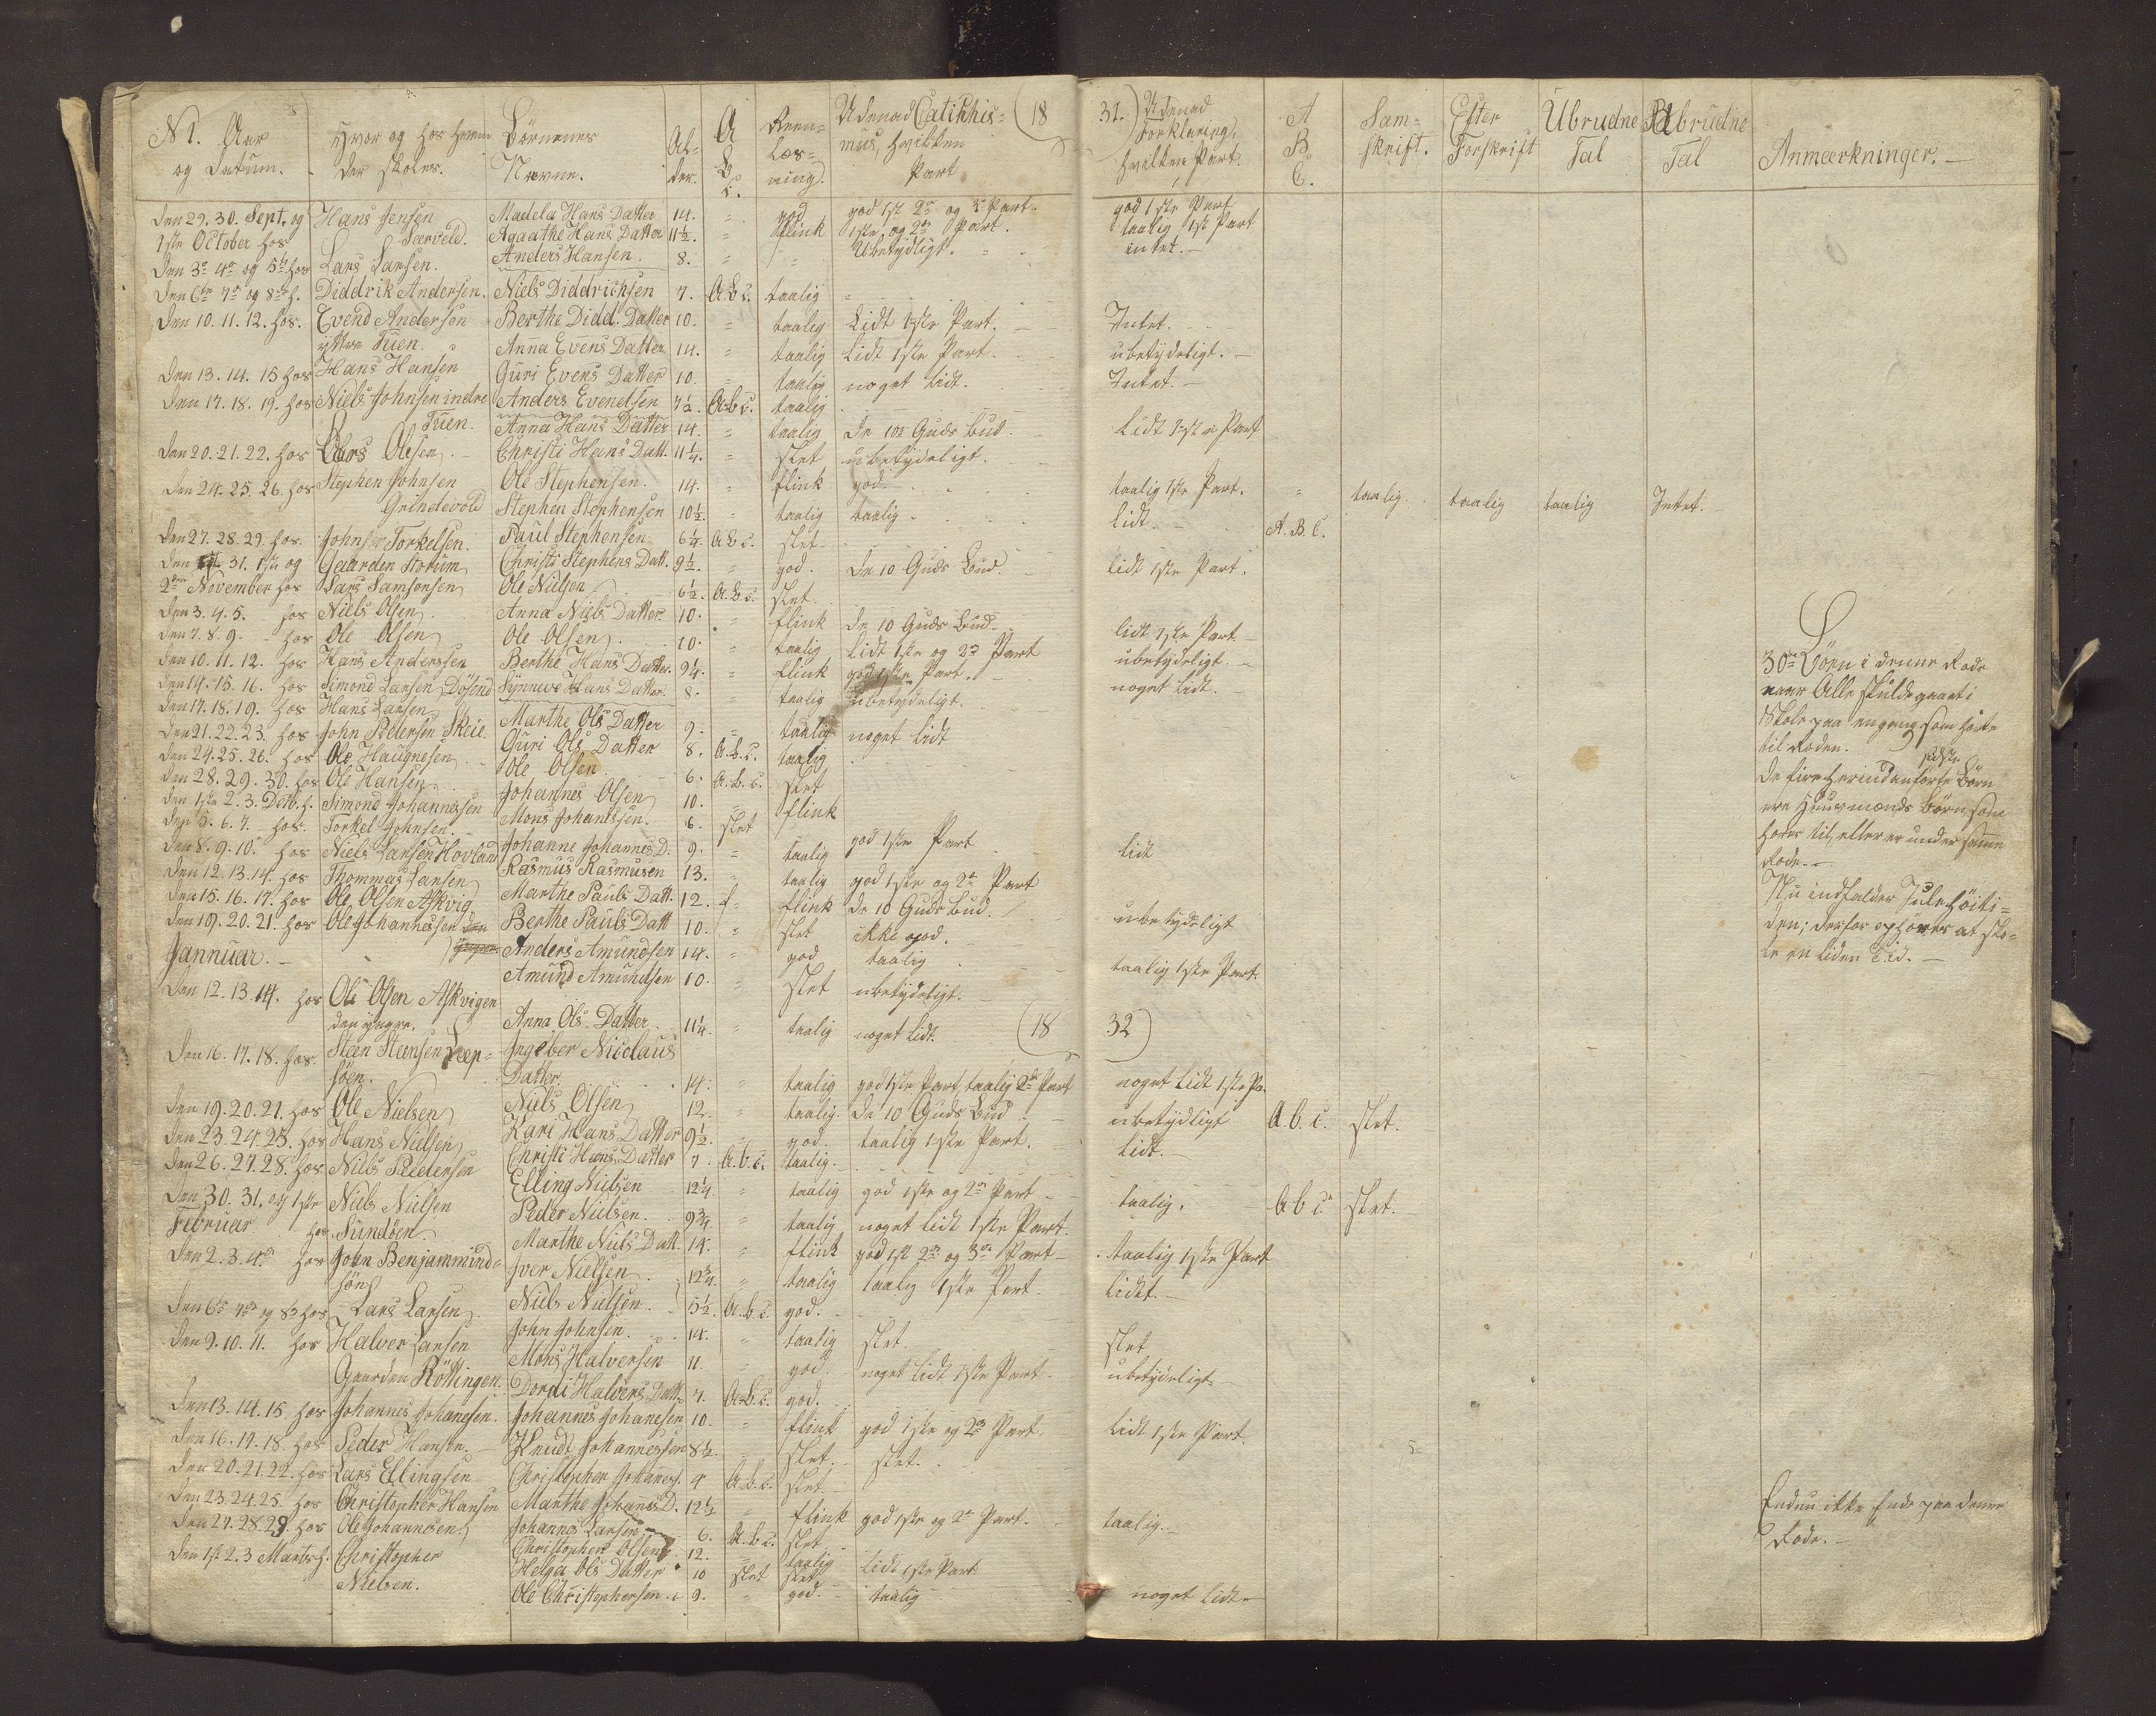 N 1. Aar Hvor og hos hvem Börnenes Al= A Reen= Udenad Catikhis= (18 31.) Udenad A Sam= Efter Ubrudne Brudne
og Datum. der skoles. Navne. der. B Læs= mus, hvilken Forklaring, B skrift. Forskrift Tal Tal Anmærkninger.
C. ning. Part hvilken Part. C.
Den 29. 30. Sept. og Hans Jensen Madela Hans Datter 14. " god god 1st 2den og 3die Part. god 1ste Part
1ste October hos Særvold. Agaathe Hans Datter 11½. " flink 1ste og 2den Part. taalig 1ste Part
Den 3die 4de og 5te hos Lars Larsen. Anders Hansen. 8. " " Ubetydligt. intet.
Den 6te 7de og 8de h. Diddrik Andersen. Niels Diddrichsen 7. A.b.c. taalig
Den 10. 11. 12. hos. Evend Andersen Berthe Didd. Datter 10. " taalig Lidt 1ste Part. Intet.
yttre Tuen. Anna Evens Datter 14. " taalig Lidt 1ste Part. ubetydeligt.
Den 13. 14. 15 hos Hans Hansen Guri Evens Datter 10. taalig noget lidt. Intet.
Den 17. 18. 19. hos Niels Johnsen indre Anders Evendsen 7½. A.b.c. taalig
Tuen. Anna Hans Datter 14. " taalig De 10 Guds bud. Lidt 1ste Part
Den 20. 21. 22. hos Lars Olsen. Christi Hans Datt. 11¼. " slet ubetydeligt.
Den 24. 25. 26. hos Stephen Johnsen Ole Stephensen. 14. " flink god taalig 1ste Part. " taalig. taalig taalig Intet.
Grindevold Stephen Stephensen 10½. " taalig taalig lidt. A. B. C.
Den 27. 28. 29. hos. Johnsen Torkelsen. Paul Stephensen 6¼. A b c. slet.
Den 31. 1ste og Gaarden Storum Christi Stephens Datt. 9½. " god. De 10 Guds Bud. lidt 1ste Part.
2den November hos Lars Samsonsen Ole Nielsen 6½. A.b.c. slet.
Den 3. 4. 5. hos Niels Olsen Anna Niels Datter. 10. " flink De 10 Guds Bud. lidt 1ste Part.
Den 7. 8. 9. hos Ole Olsen Ole Olsen 10. " taalig lidt 1ste og 2den Part ubetydeligt.
Den 10. 11. 12. hos Hans Anderssen Berthe Hans Datter. 9¼. " flink god 1ste Part. noget lidt.
Den 14. 15. 16. hos Simond Larsen Dösend Synneve Hans Datter. 8. " taalig ubetydeligt.
Den 17. 18. 19. hos Hans Larsen Marthe Ols Datter 9. " taalig noget lidt
Den 21. 22. 23. hos John Pedersen Skeie. Guri Ols Datter 8. A.b.c. taalig
Den 24. 25. 26. hos Ole Haugnesen Ole Olsen 6. A.b.c. slet
Den 28. 29. 30. hos Ole Hansen Johannes Olsen 10. " flink
Den 1ste 2. 3. Decb. h. Simond Johannessen Mons Johannsen. 6. slet
Den 5. 6. 7. hos. Torkel Johnsen. Johanne Johannes D. 9. " taalig god 1ste Part lidt
Den 8. 9. 10. hos Niels Larsen Hovland Rasmus Rasmusen 13. " taalig god 1ste og 2den Part
Den 12. 13. 14. hos Thommas Larsen Marthe Pauls Datt. 12. flink De 10 Guds bud.
Den 15. 16. 17. hos Ole Olsen Askvig Berthe Pauls Datt 10. " slet ikke god. ubetydeligt
Den 19. 20. 21. hos Ole Johannessen den Anders Amundsen 14. " god taalig taalig 1ste Part.
Jannuar. Amund Amundsen 10. " slet ubetydeligt.
30 Börn i denne Rode
naar Alle skulde gaae i
Skole paa engang som hörte
til Roden.
sidste
De fire herindanförte Börn
ere Huusmænds Börn som
hörer til, eller er under samme
Rode.
Nu indfalder Julehöiti=
den; derfor ophöres at sko=
le en liden Tid.
Den 12. 13. 14. hos Ole Olsen Askvigen Anna Ols Datter 11¼. " taalig noget lidt. (18 32)
den yngre.
Den 16. 17. 18. hos. Steen Steensen Leep= Ingeber Nicolaus
söen. Datter. 14. " taalig god 1ste Part taalig 2den Part noget lidt 1ste Pa.
Den 19. 20. 21. hos Ole Nielsen Niels Olsen 12. " taalig. De 10 Guds Bud ubetydligt A. b. c. slet.
Den 23. 24. 25. hos Hans Nielsen Kari Hans Datter 9½. " god. taalig 1ste Part. lidt.
Den 26. 27. 28. hos Niels Pedersen Christi Hans Datter 7. A.b.c. taalig.
Den 30. 31. og 1ste Niels Nielsen Elling Nielsen 12¼. " taalig god 1ste og 2den Part taalig. A b c slet.
Februar hos Sundöen. Peder Nielsen. 9¾. " taalig noget lidt 1ste Part.
Den 2. 3. 4de hos John Benjammind= Marthe Niels Datt. 14. " flink god 1st 2den og 3die Part taalig 1ste Part
söns Iver Nielsen 12¾. " taalig taalig 1ste Part. lidet.
Den 6te 7de og 8de hos Lars Larsen Niels Nielsen. 5½. A.b.c. god.
Den 9. 10. 11. hos Halver Larsen John Johnsen. 14. " taalig slet. slet
Gaarden Röttingen. Mons Halversen 11. " god. noget lidt 1ste Part. ubetydeligt.
Dordi Halvers Datt. 7. A.b.c. god.
Den 13. 14. 15. hos Johannes Johanesen. Johannes Johanesen 10. " flink god 1ste og 2den Part. lidt 1ste Part.
Den 16. 17. 18. hos Peder Hansen. Knudt Johannessen 8½. slet. slet.
Den 20. 21. 22. hos Lars Ellingsen Christopher Johaness. 4 A.b.c. slet
Den 23. 24. 25. hos Christopher Hansen Marthe Johanes D. 12½ " flink god 1ste og 2den Part. taalig.
Den 27. 28. 29. hos Ole Johannesen Johannes Larsen 6. A.b.c. slet
Den 1st 2. 3 Marts h. Christopher Christopher Olsen 12. " taalig lidt 1ste Part
Nielsen. Helga Ols Datter 10 slet slet
Ole Christophersen. 9. " god. taalig noget lidt
Endnu ikke Ende paa denne
Rode.